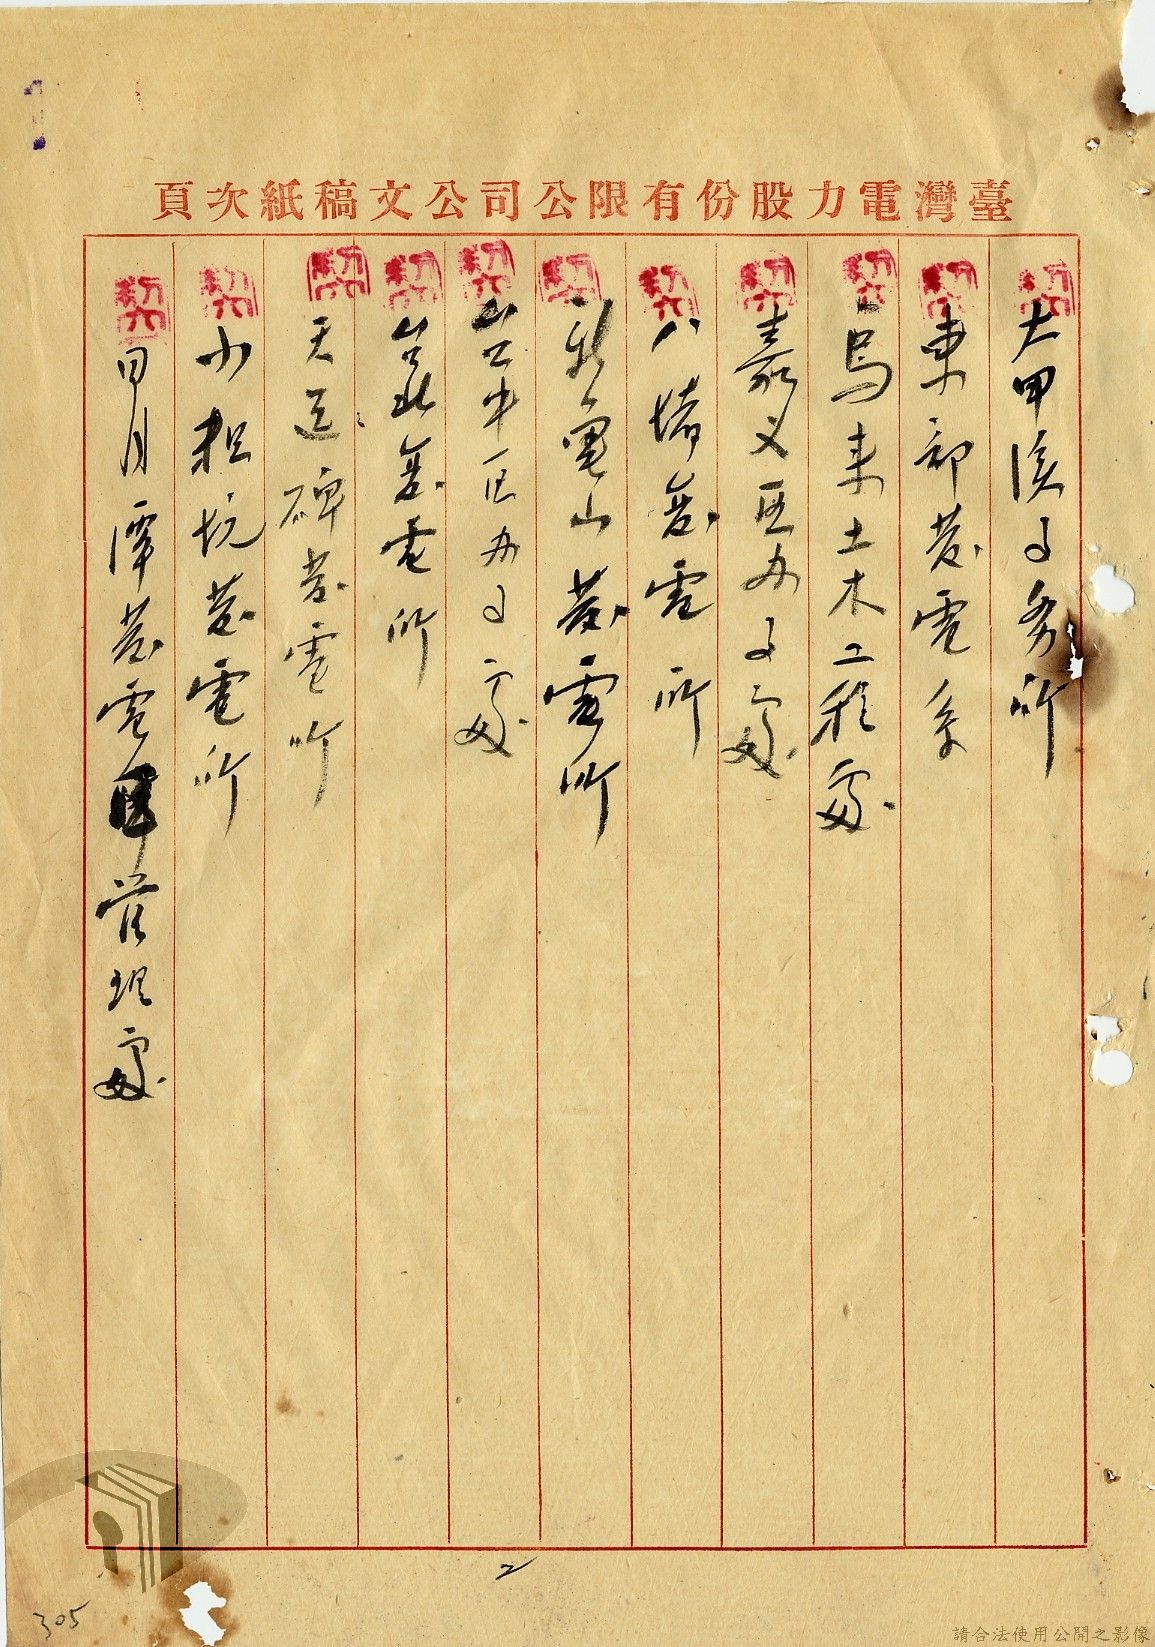 臺灣電力股份有限公司公文稿紙次頁
大甲溪事務所
東部發電系
烏來土木工程處
嘉义區办事處
八堵變電所
新龜山發電所
台中區办事處
台北變電所
天送碑發電所
小粗坑發電所
日月潭發電管理處
2
305
請合法使用公開之影像